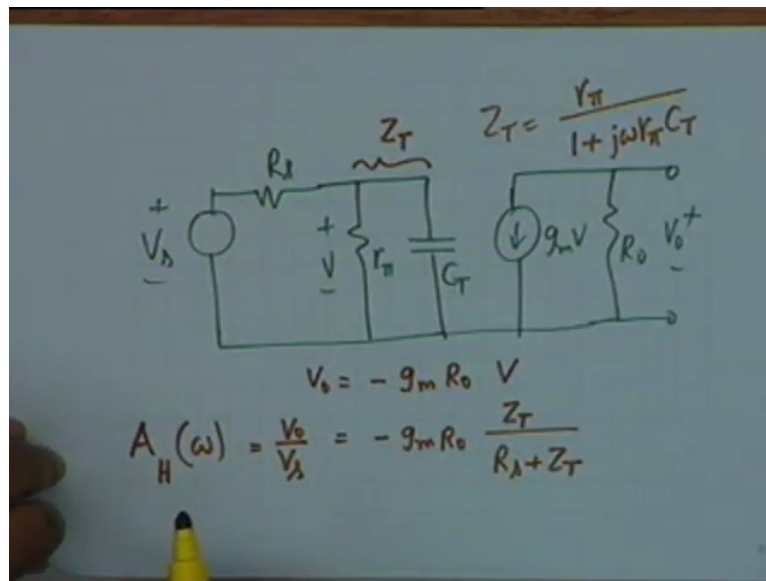 Z_T
Z_T = r_π / (1 + jω r_π C_T)
R_s
+
V_s
−
+
V
−
r_π
C_T
g_m V
R_0
V_0 +
−
V_0 = − g_m R_0 V
A_H (ω) = V_0 / V_s = − g_m R_0 Z_T / (R_s + Z_T)